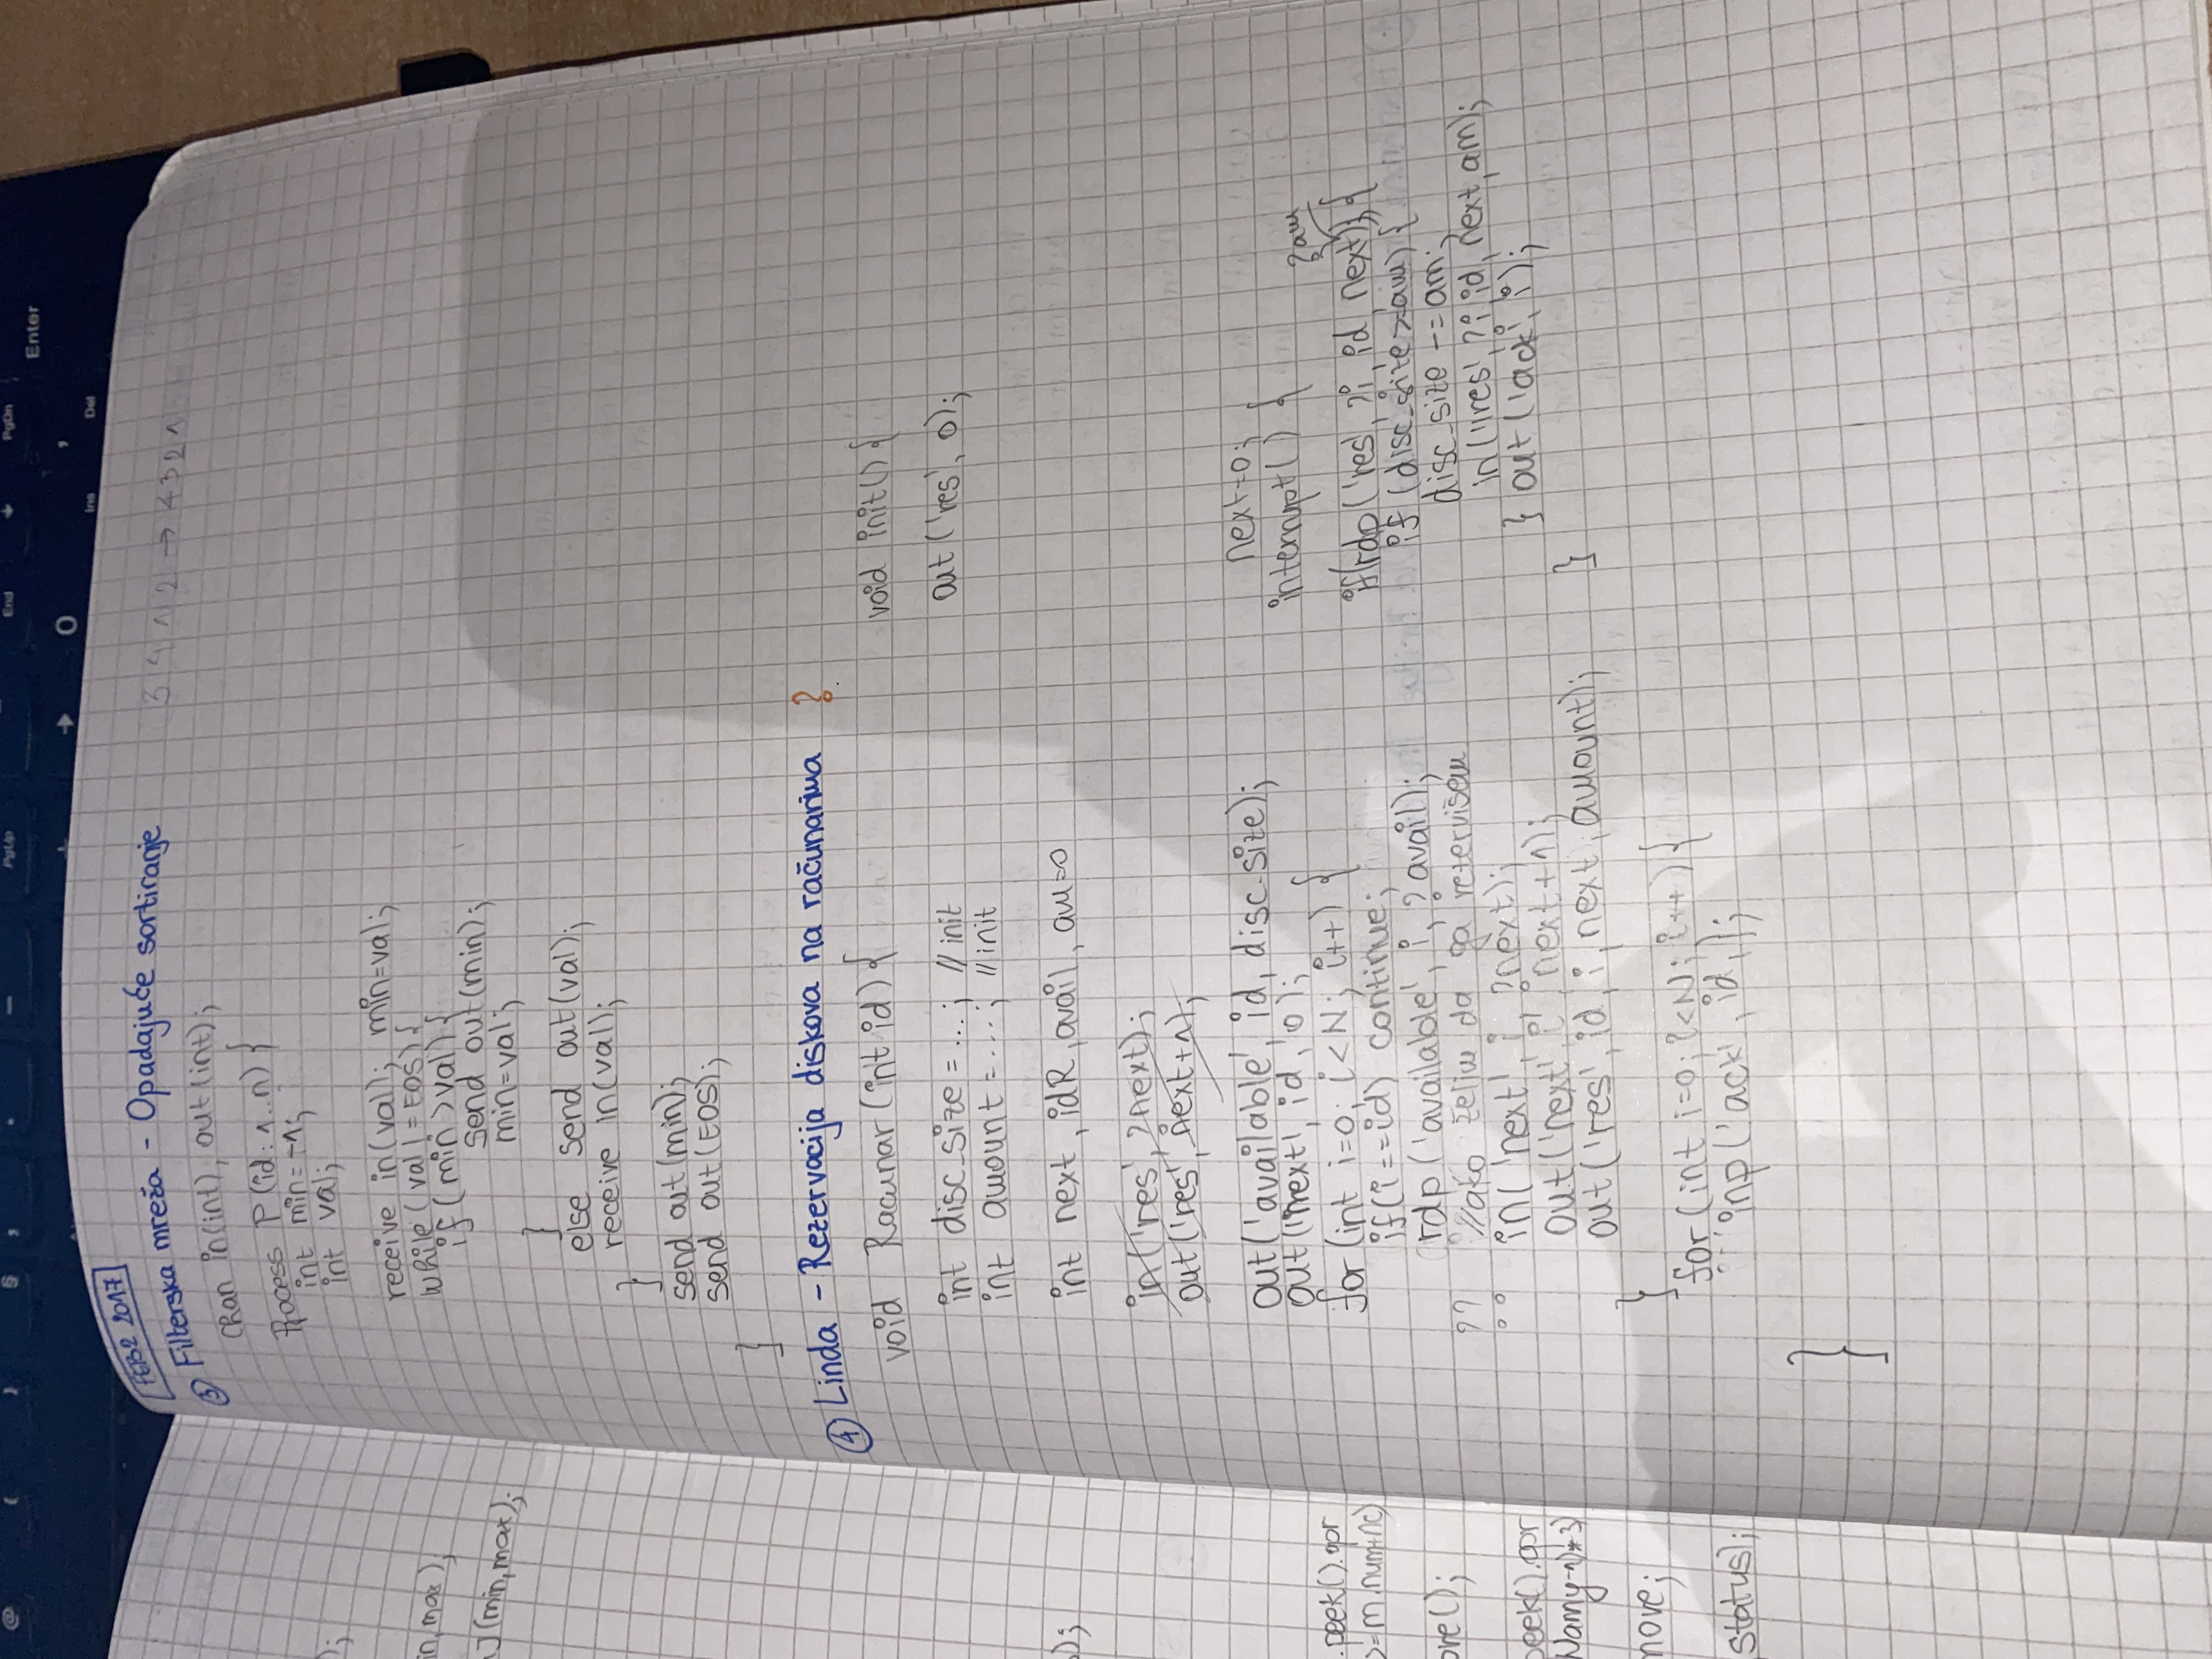 @
PgUp
End
PgDn
Enter
0
Ins
Del
FEB2 2017
③ Filterska mreža - Opadajuće sortiranje
3 4 1 2 → 4 3 2 1
chan in(int), out(int);
Process P(id: 1..n) {
int min=-1;
int val;
receive in(val); min=val;
while(val!=EOS){
if(min>val){
send out(min);
min=val;
}
else send out(val);
receive in(val);
}
send out(min);
send out(EOS);
}
④ Linda - Rezervacija diskova na računarima ?
void Racunar(int id) {
int disc_size = ...; // init
int amount = ....; // init
int next, idR, avail, am=0
in('res', ?next);
out('res', next+1);
out('available', id, disc_size);
out('next', id, 0);
for(int i=0; i<N; i++) {
if(i==id) continue;
rdp('available', i, ?avail);
?? //ako želim da ga rezervišem
in('next', i, ?next);
out('next', i, next+1);
out('res', id, i, next, amount);
}
for(int i=0; i<N; i++) {
inp('ack', id, );
}
void init() {
out('res', 0);
next=0;
interrupt() {
?am
if(rdp('res', ?i, id, next)) {
if(disc_size>=am) {
disc_size -= am;
in('res', ?i, id, next, am);
} out('ack', i);
}
);
in,max);
](min,max);
);
.peek().gpr
>=m.num+nc)
ore();
peek().gpr
move;
status);